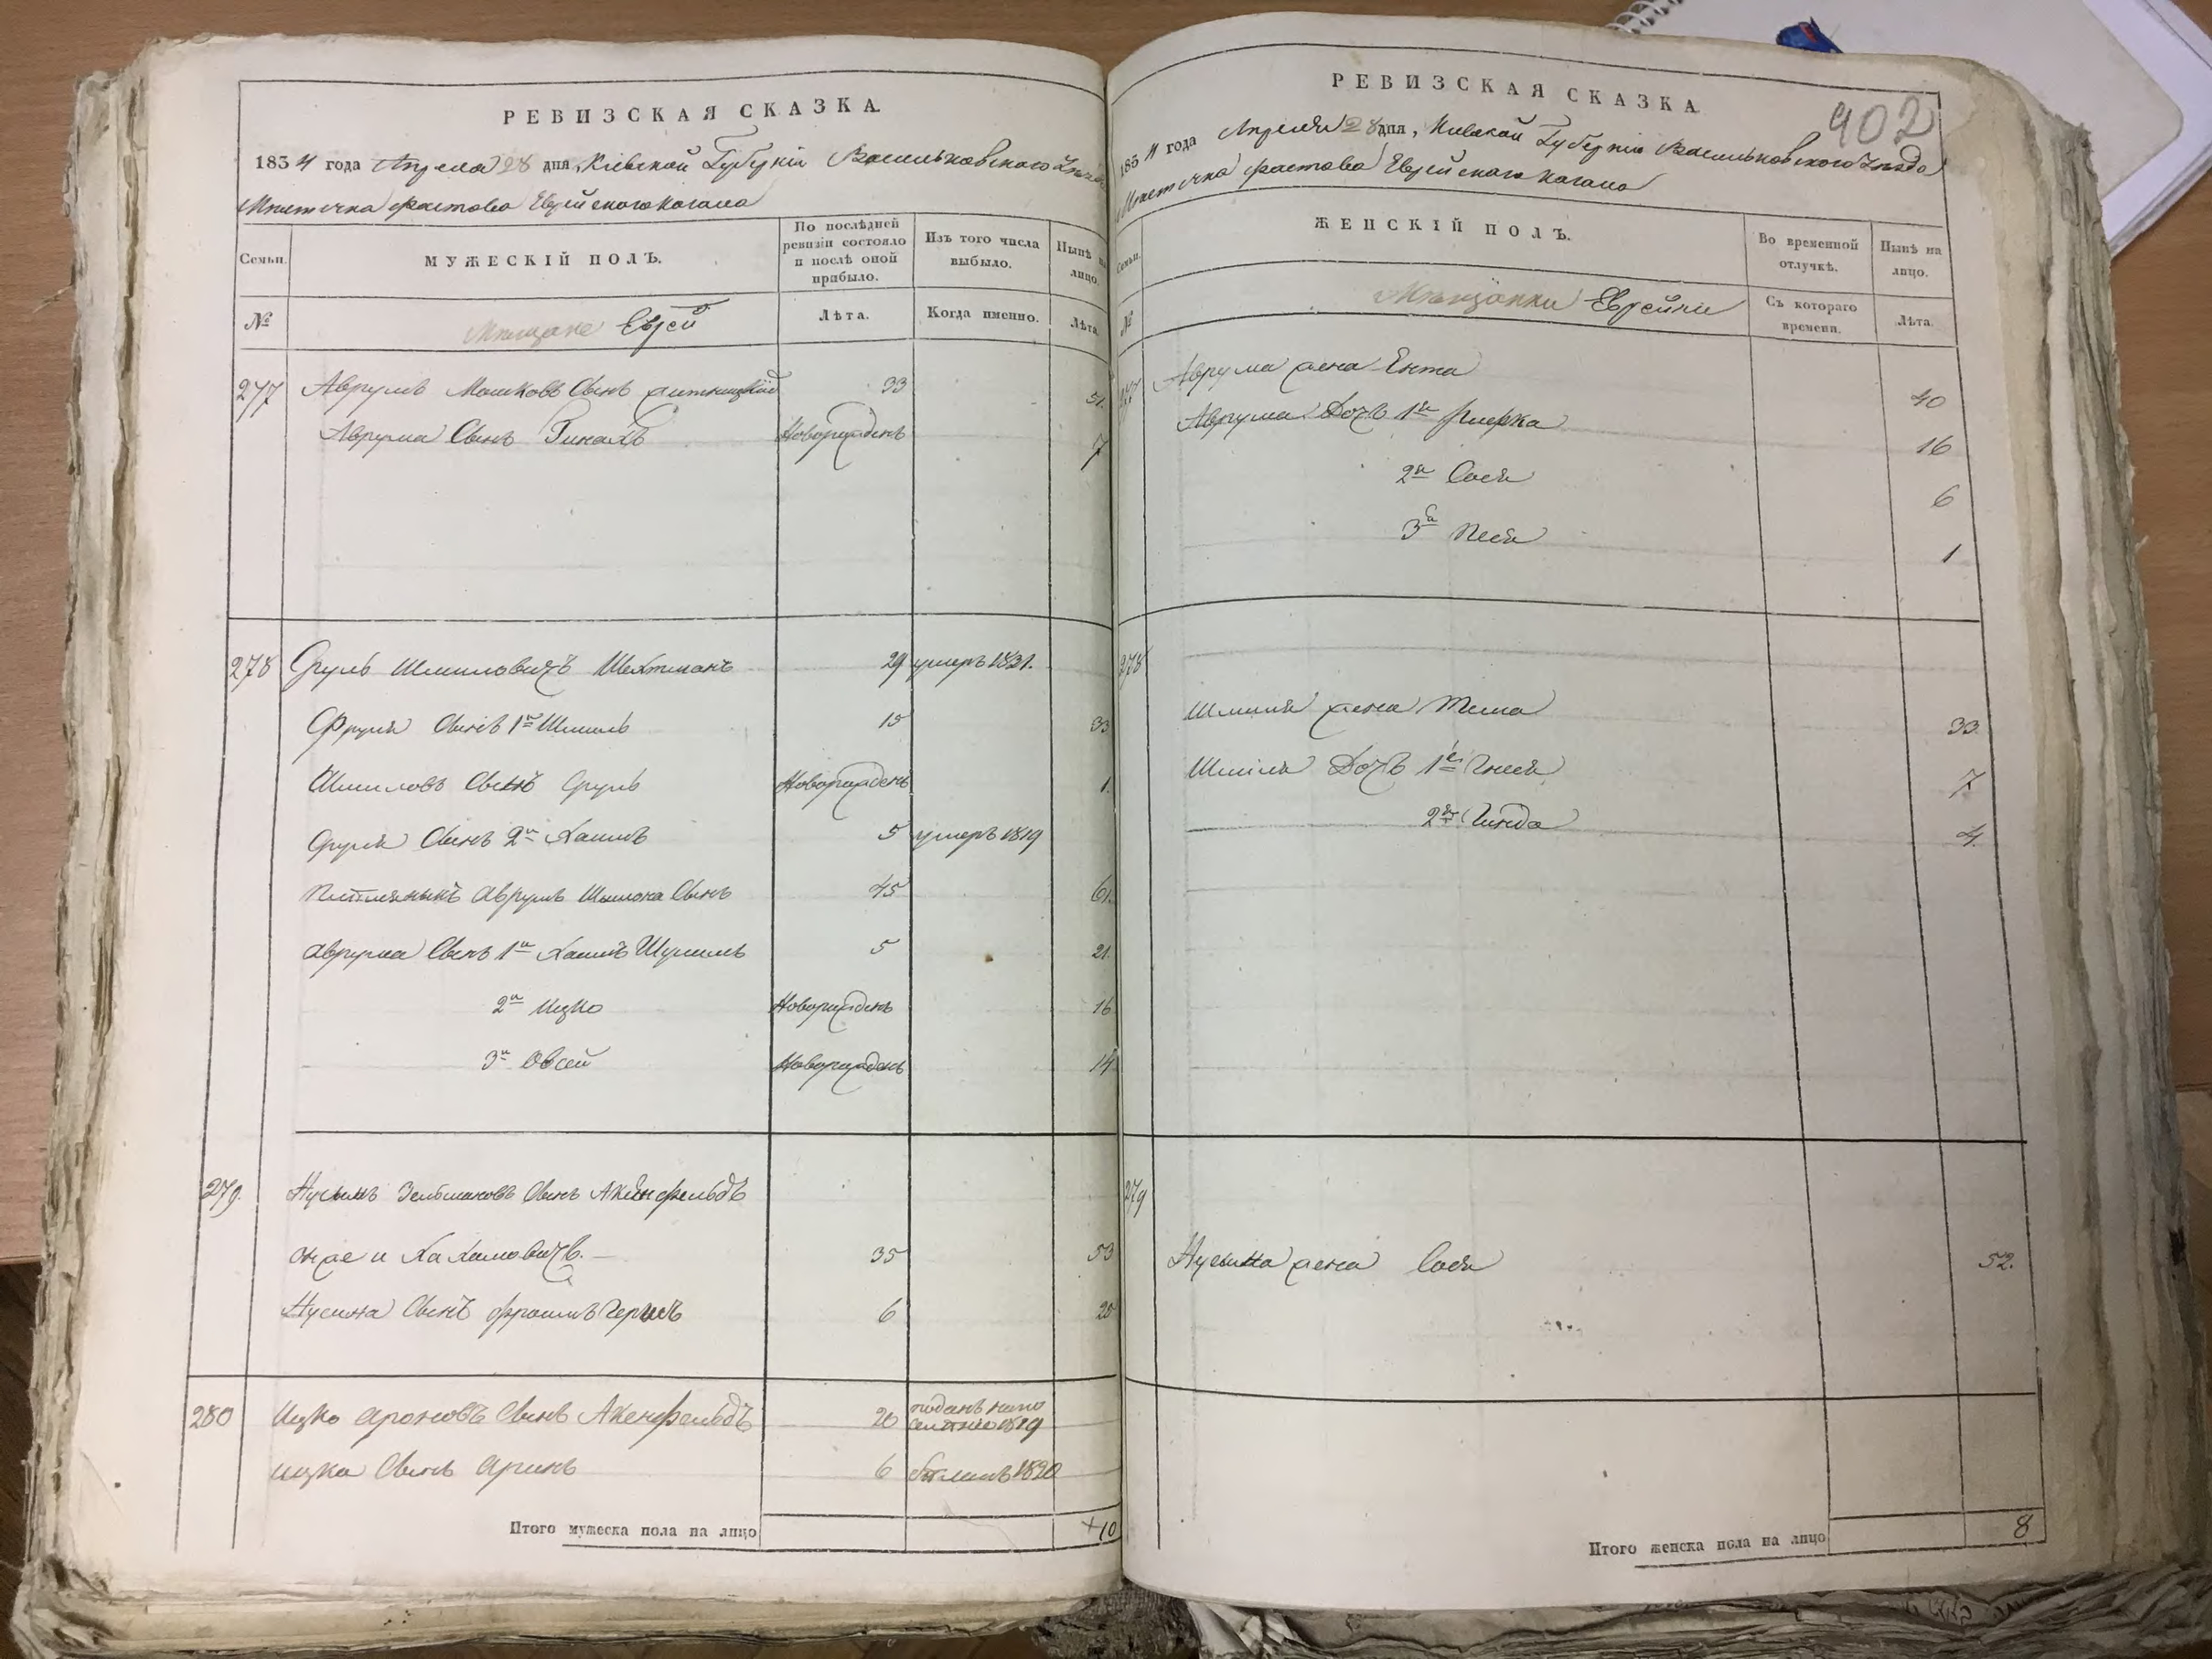 РЕВИЗСКАЯ СКАЗКА
1834 года Апреля 28 дня, Кіевской Губерніи Васильковского
Местечка Фастова Еврейского Кагала
Семьи.
МУЖЕСКІЙ ПОЛЪ.
По послѣдней ревизіи состояло и послѣ оной прибыло.
Изъ того числа выбыло.
Нынѣ на лицо.
№
Мещане Евреи
Лѣта.
Когда именно.
Лѣта.
277 Аврумъ Мошковъ Сынъ 33 51.
Аврума Сынъ Пинахъ Новорожденъ 7
278 Сруль Шмиловичъ Шехтманъ 29 умеръ 1821.
Сруля Сынъ 1й Шмиль 15 33
Шмиловъ Сынъ Сруль Новорожденъ 1.
Сруля Сынъ 2й Хаимъ 5 умеръ 1819
Племянникъ Аврумъ Шимона Сынъ 45 61.
Аврума Сынъ 1й Хаимъ Шулимъ 5 21.
2й Ицко Новорожденъ 16
3й Овсей Новорожденъ 14
279. Нусынъ Зельмановъ Сынъ
онже и 35 53
Нусина Сынъ 6
280 Ицко Ароновъ Сынъ Акенфельдъ 20 1819
Ицка Сынъ Аронъ 6 1820
Итого мужеска пола на лицо +10
902
РЕВИЗСКАЯ СКАЗКА
1834 года Апреля 28 дня, Киевской Губерніи Васильковского Уезда
Местечка Фастова Еврейского Кагала
Семьи.
ЖЕНСКІЙ ПОЛЪ.
Во временной отлучкѣ.
Нынѣ на лицо.
№
Мещанки Еврейки
Съ котораго времени.
Лѣта.
277 Аврума жена Ента 40
Аврума Дочь 1я Ривка 16
2я Сося 6
3я Песя 1
278
Шмиля жена 33.
Шмиля Дочь 1я 7
2я 4.
279
Нусына жена Сося 52.
Итого женска пола на лицо 8